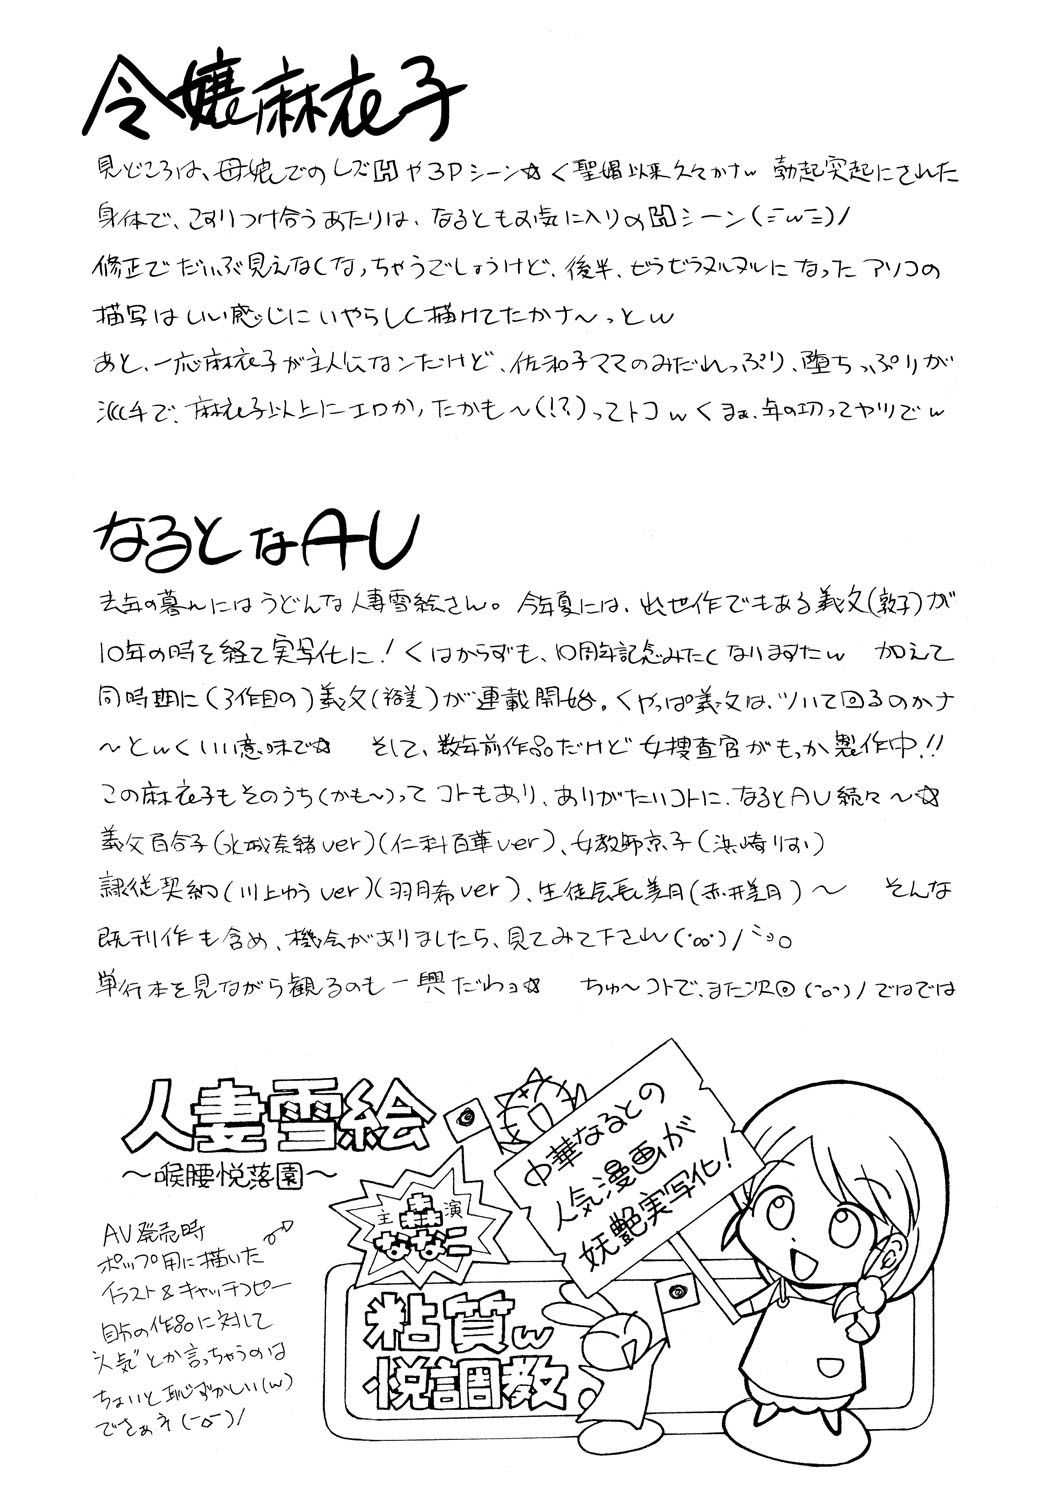 令嬢麻衣子
見どころは、母娘でのレズHや3Pシーン☆く聖娼以来久々かナw 勃起突起にされた
身体で、こすりつけ合うあたりは、なるともお気に入りのHシーン(ﾆwﾆ)/
修正でだいぶ見えなくなっちゃうでしょうけど、後半、ぜうぜうヌルヌルになったアソコの
描写はいい感じにいやらしく描けてたかナ～っとw
あと、一応麻衣子が主人公なンだけど、佐和子ママのみだれっぷり、堕ちっぷりが
派手で、麻衣子以上にエロかったかも～(!?)ってトコw くまぁ、年の功ってヤツでw
なるとなAU
去年の暮れにはうどんな人妻雪絵さん。 今年夏には、出世作でもある義父(敦子)が
10年の時を経て実写化に！くはからずも、10周年記念みたくなりますたw 加えて
同時期に(3作目の)義父(裕美)が連載開始。くやっぱ義父は、ツいて回るのかナ
～とwくいい意味で☆ そして、数年前作品だけど女捜査官がもっか製作中!!
この麻衣子もそのうち(かも～)ってコトもあり、ありがたいコトに、なるとAU続々～☆
義父百合子(北城奈緒ver)(仁科百華ver)、女教師京子(浜崎りお)
隷従契約(川上ゆうver)(羽月希ver)、生徒会長美月(赤井美月)～ そんな
既刊作も含め、機会がありましたら、見てみて下さいw
単行本を見ながら観るのも一興だわョ☆ ちゅ～コトで、また次回(ｰoｰ)/ではでは
人妻雪絵
～喉腰悦落園～
主演
ななこ
中華なるとの
人気漫画が
妖艶実写化！
粘質w
悦調教。
AV発売時
ポップ用に描いた
イラスト&キャッチコピー
自分の作品に対して
"人気"とか言っちゃうのは
ちょいと恥ずかしい(w)
でさぁネ(-o-)/